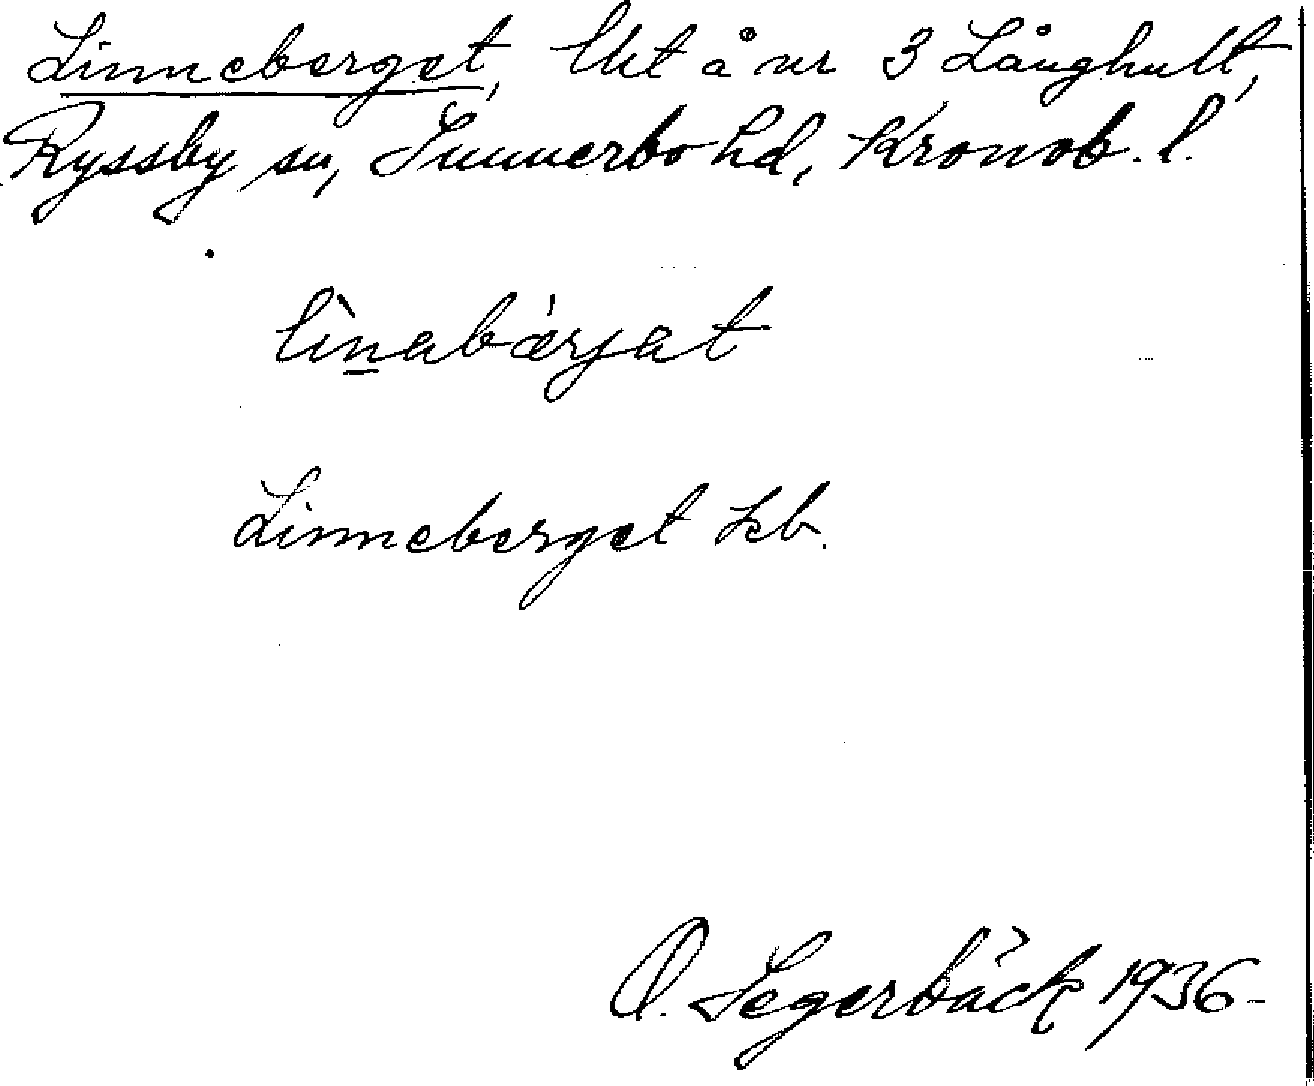 Linneberget, lht å nr 3 Långhult,
Ryssby sn, Sunnerbo hd, Kronob. l.
lìnabǽrjat
Linneberget kb.
O. Segerbäck 1936-